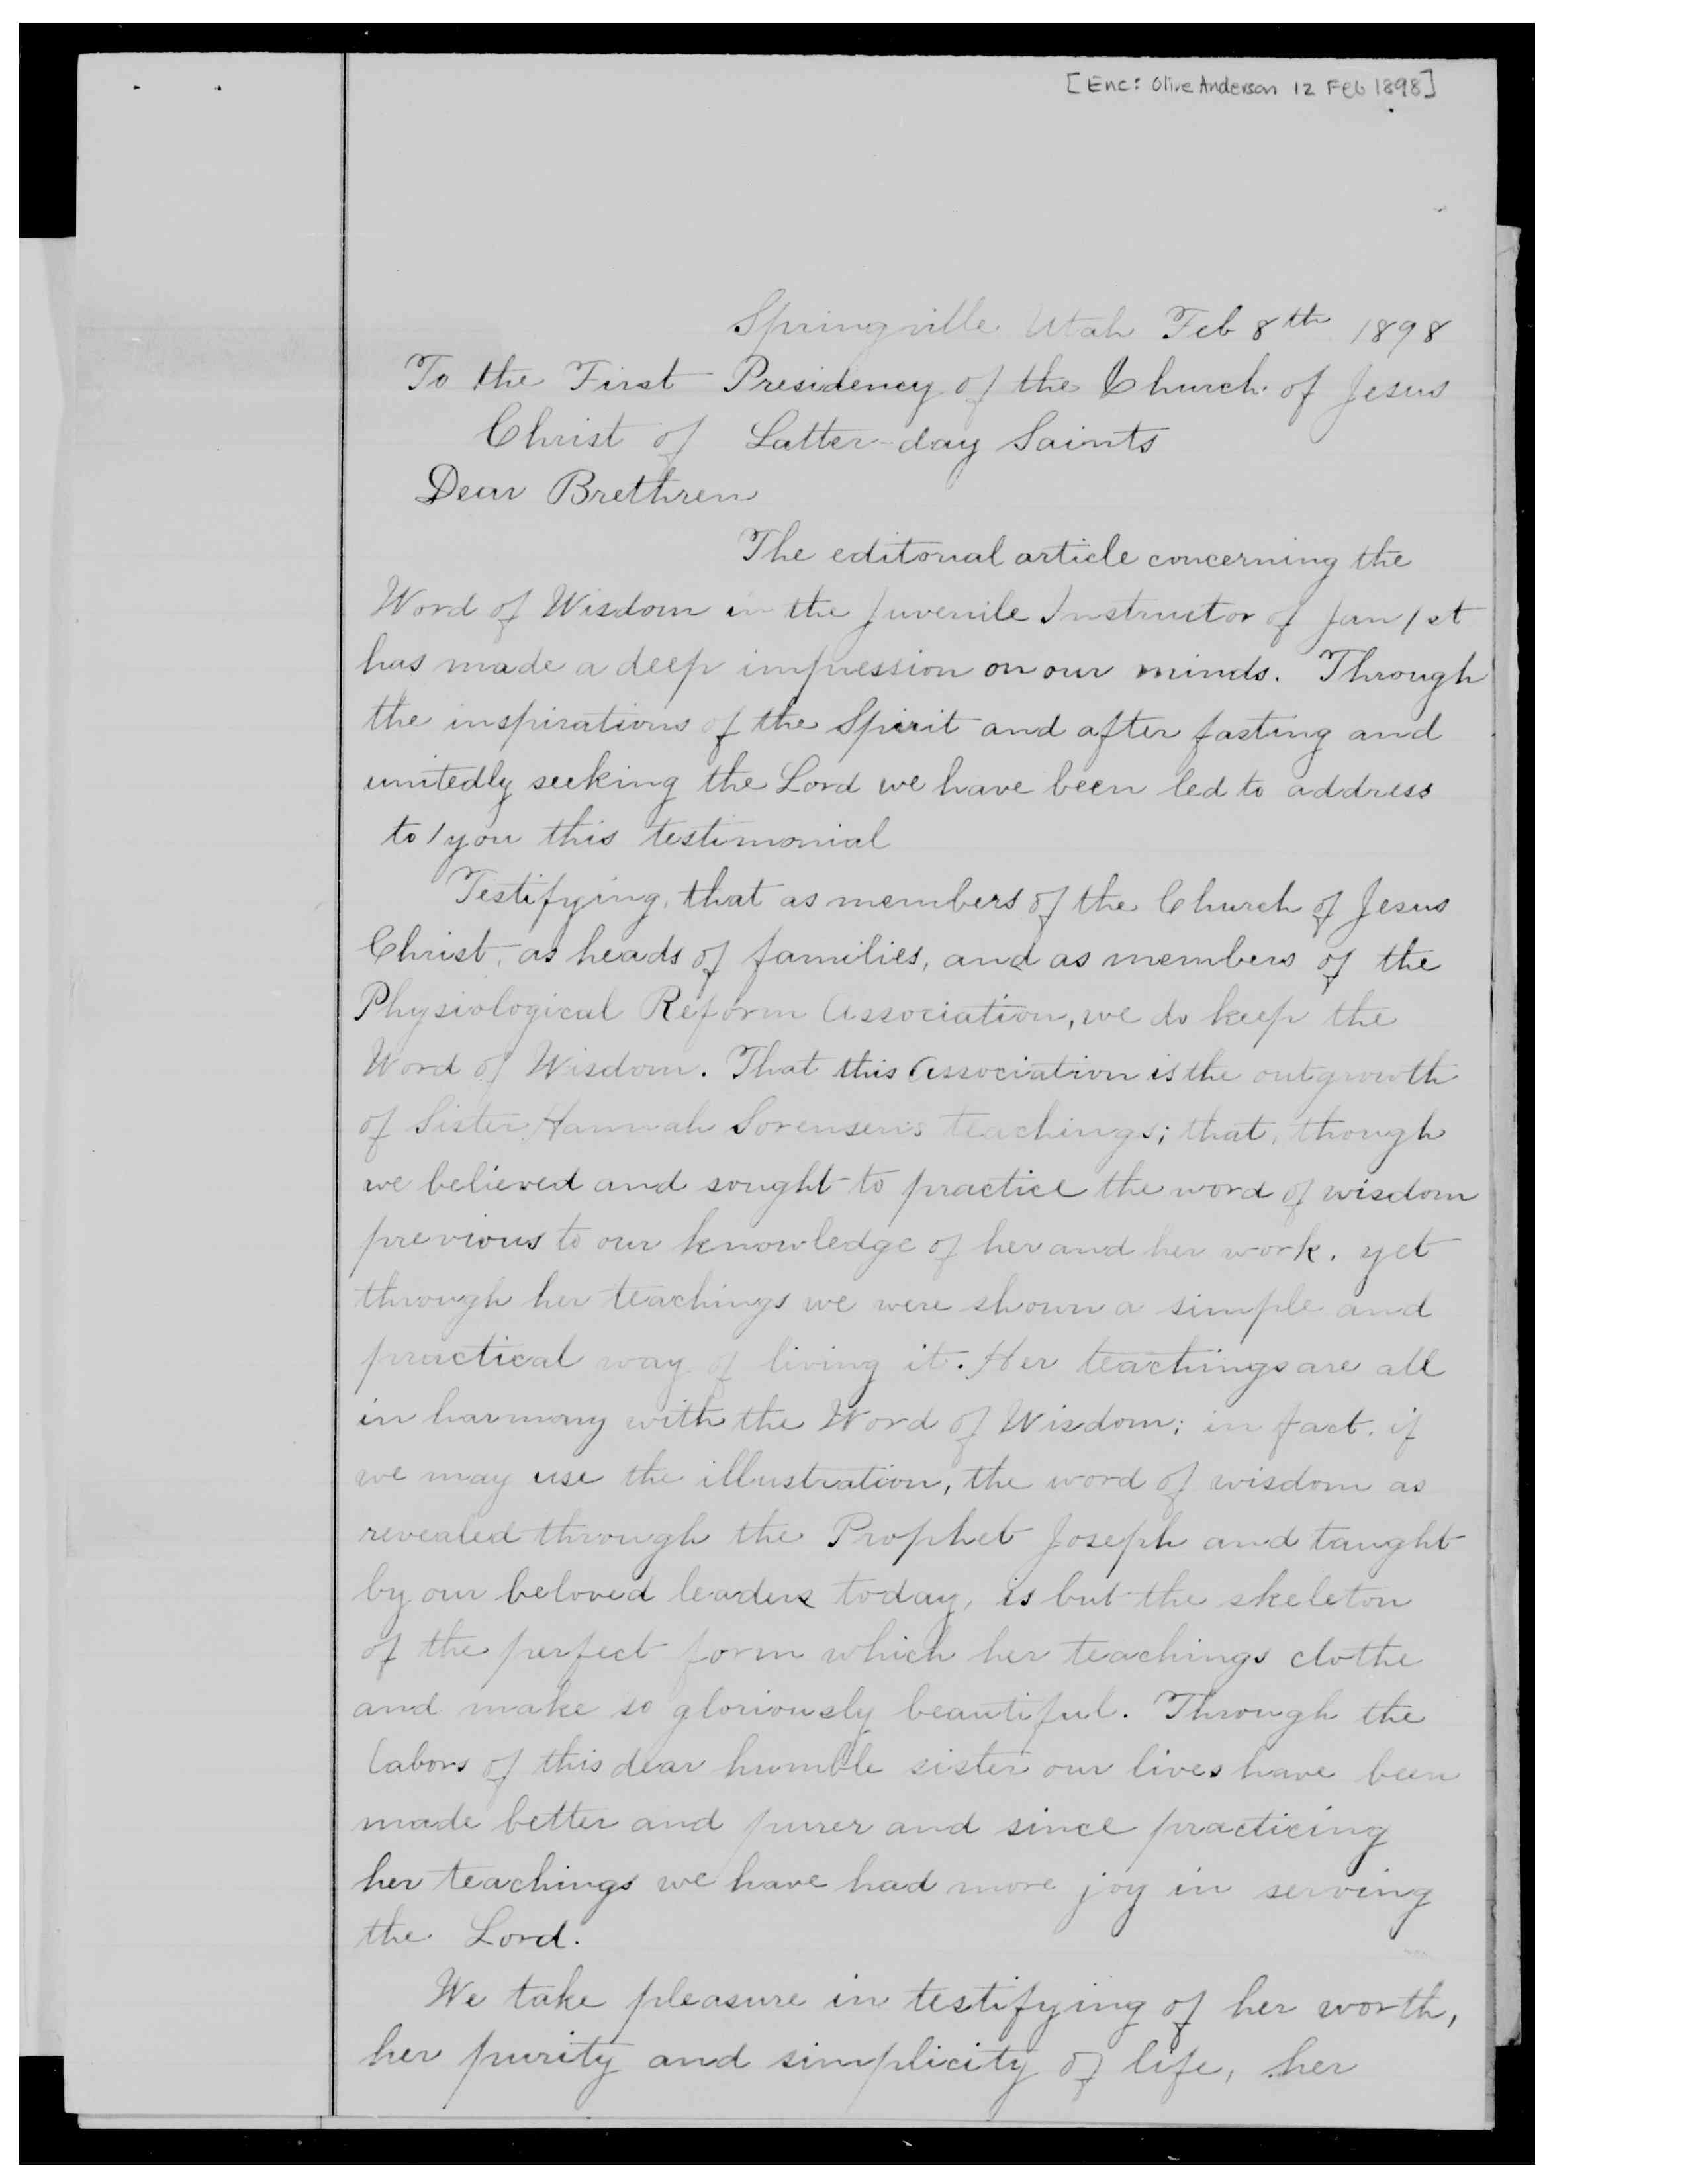 [Enc: Olive Anderson 12 Feb 1898]
Springville Utah Feb 8th 1898
To the First Presidency of the Church of Jesus
Christ of Latter-day Saints
Dear Brethren
The editorial article concerning the
Word of Wisdom in the Juvenile Instructor of Jan 1st
has made a deep impression on our minds. Through
the inspirations of the Spirit and after fasting and
unitedly seeking the Lord we have been led to address
to you this testimonial
Testifying, that as members of the Church of Jesus
Christ, as heads of families, and as members of the
Physiological Reform Association, we do keep the
Word of Wisdom. That this Association is the outgrowth
of Sister Hannah Sorensen's teachings; that, though
we believed and sought to practice the word of wisdom
previous to our knowledge of her and her work, yet
through her teachings we were shown a simple and
practical way of living it. Her teachings are all
in harmony with the Word of Wisdom; in fact, if
we may use the illustration, the word of wisdom as
revealed through the Prophet Joseph and taught
by our beloved leaders today, is but the skeleton
of the perfect form which her teachings clothe
and make so gloriously beautiful. Through the
labors of this dear humble sister our lives have been
made better and purer and since practicing
her teachings we have had more joy in serving
the Lord.
We take pleasure in testifying of her worth,
her purity and simplicity of life, her